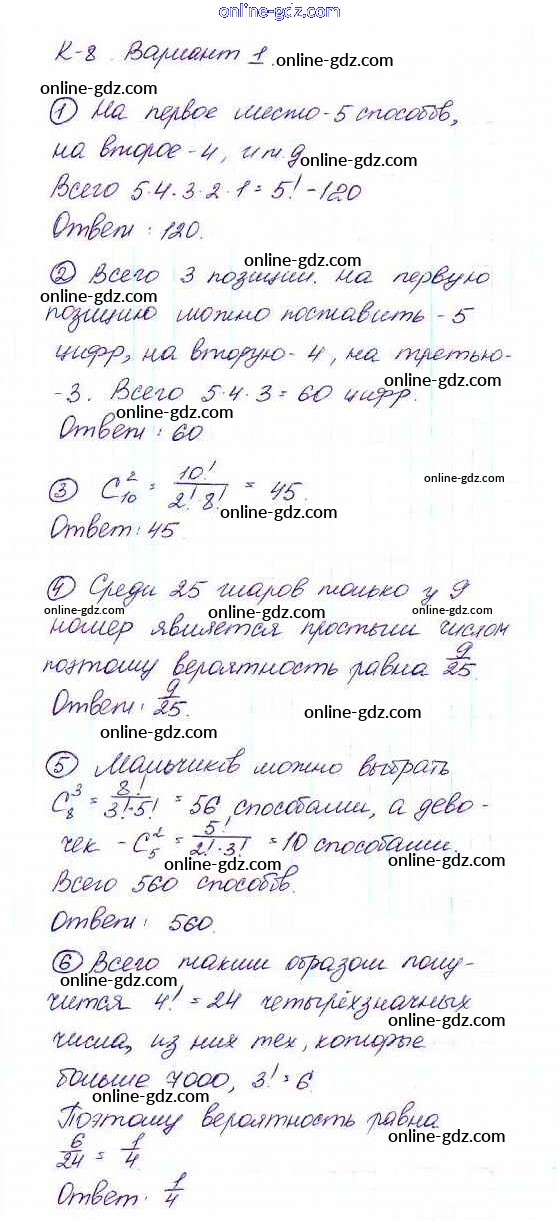 online-gdz.com
К-8. Вариант 1. online-gdz.com
online-gdz.com
① На первое место - 5 способов,
на второе - 4, и т. д. online-gdz.com
Всего 5·4·3·2·1 = 5! - 120
Ответ: 120.
online-gdz.com
② Всего 3 позиции. На первую
online-gdz.com
позицию можно поставить - 5
цифр, на вторую - 4, на третью -
- 3. Всего 5·4·3 = 60 цифр.
online-gdz.com
online-gdz.com
Ответ: 60
③ C₁₀² = 10!/(2!·8!) = 45.
online-gdz.com
online-gdz.com
Ответ: 45
④ Среди 25 шаров только у 9
online-gdz.com online-gdz.com online-gdz.com
номер является простым числом
поэтому вероятность равна 9/25.
Ответ: 9/25.
online-gdz.com
online-gdz.com
⑤ Мальчиков можно выбрать
C₈³ = 8!/(3!·5!) = 56 способами, а дево-
чек - C₅² = 5!/(2!·3!) = 10 способами.
online-gdz.com
online-gdz.com
Всего 560 способов.
Ответ: 560.
⑥ Всего таким образом полу-
online-gdz.com
чится 4! = 24 четырёхзначных
online-gdz.com
числа, из них тех, которые
больше 7000, 3! = 6
Поэтому вероятность равна
6/24 = 1/4
online-gdz.com
Ответ. 1/4
online-gdz.com